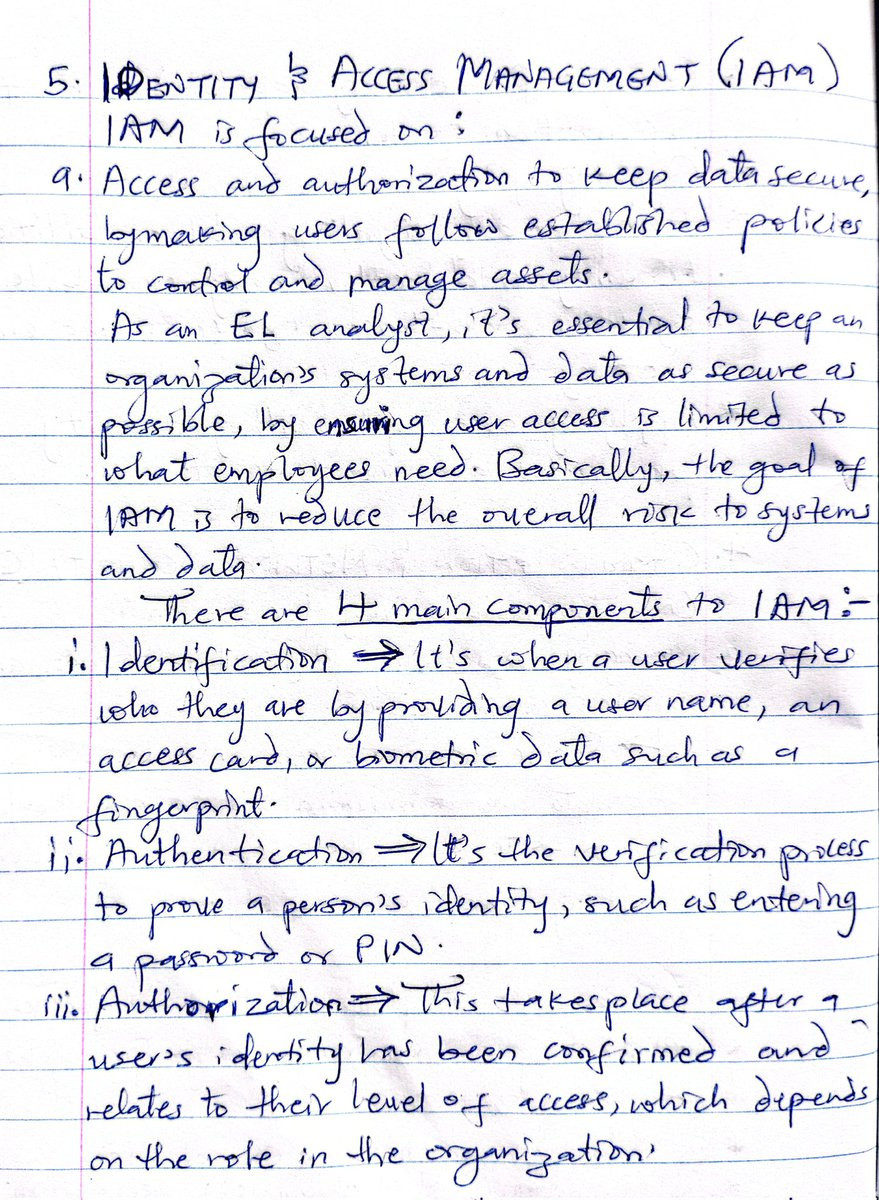 5. IDENTITY & ACCESS MANAGEMENT (IAM)
IAM is focused on:
a. Access and authorization to keep data secure,
by making users follow established policies
to control and manage assets.
As an EL analyst, it's essential to keep an
organization's systems and data as secure as
possible, by ensuring user access is limited to
what employees need. Basically, the goal of
IAM is to reduce the overall risk to systems
and data.
There are 4 main components to IAM:-
i. Identification ⇒ It's when a user verifies
who they are by providing a user name, an
access card, or biometric data such as a
fingerprint.
ii. Authentication ⇒ It's the verification process
to prove a person's identity, such as entering
a password or PIN.
iii. Authorization ⇒ This takes place after a
user's identity has been confirmed and
relates to their level of access, which depends
on the role in the organization.